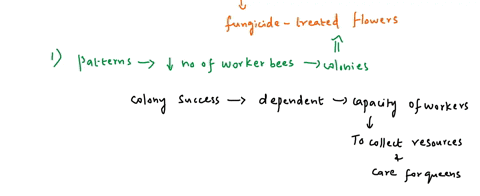 ↓
fungicide - treated flowers
⇑
1) patterns → ↓ no of worker bees → colonies
colony success → dependent → capacity of workers
↓
To collect resources
+
care for queens